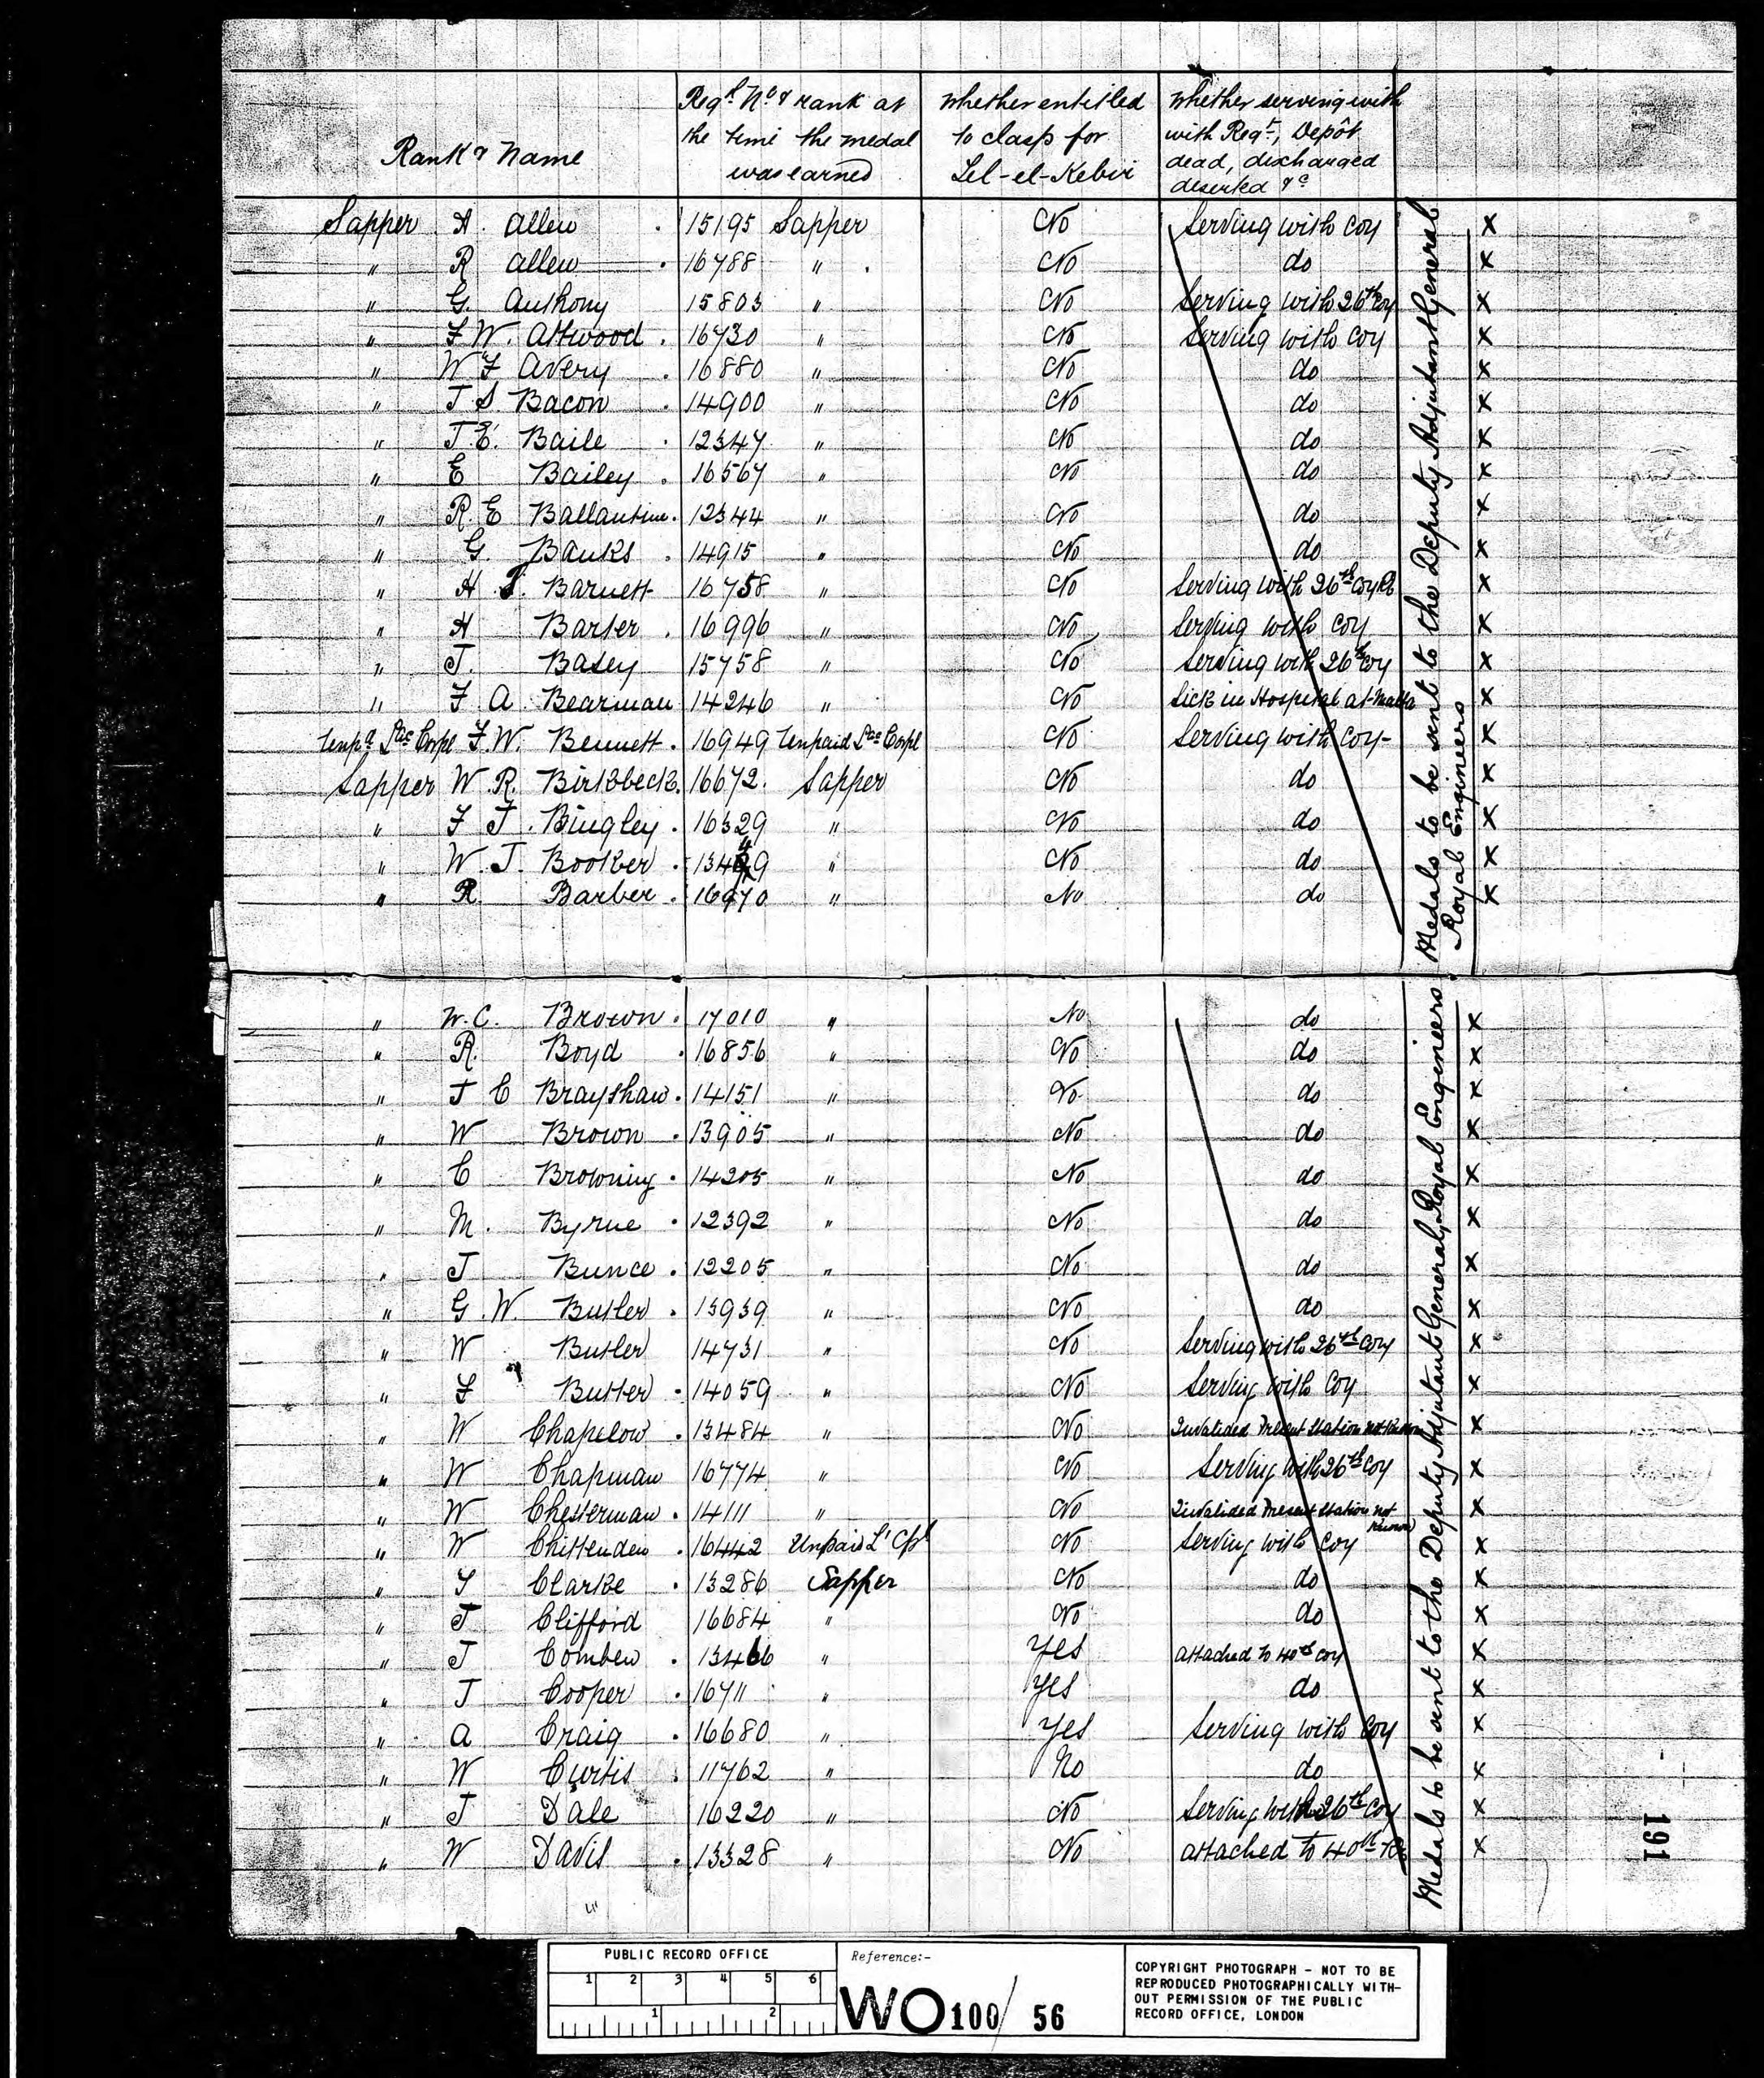 Rank & Name
Regl No & rank at the time the medal was earned
Whether entitled to clasp for Tel-el-Kebir
Whether serving with with Regt, Depôt dead, discharged deserted &c
Sapper A. Allen . 15195 Sapper No Serving with Coy X
" R Allen . 16788 " . No do X
" G. Anthony 15803 " No Serving with 26th Coy X
" F W. Attwood . 16730 " No Serving with Coy X
" W F Avery . 16880 " No do X
" J S Bacon . 14900 " No do X
" J. E. Baile . 12347 " No do X
" E Bailey . 16567 " No do X
" R. E Ballantine . 12344 " No do X
" G. Banks . 14915 " No do X
" H Barnett 16758 " No Serving with 26th Coy RE X
" H Barter . 16996 " No Serving with Coy X
" J. Basey 15758 " No Serving with 26th Coy X
" F A Bearman 14246 " No Sick in Hospital at Malta X
Unpd Lce Corpl F. W. Bennett . 16949 Unpaid Lce Corpl No Serving with Coy - X
Sapper W R. Birkbeck . 16672. Sapper No do X
" F J. Bingley . 16329 " No do X
" W. J. Booker . " No do X
" R. Barber . 16970 " No do X
" W. C. Brown . 17010 " No do X
" R. Boyd . 16856 " No do X
" J C Brayshaw . 14151 " No do X
" W Brown . 13905 " No do X
" C Browning . 14205 " No do X
" M. Byrne . 12392 " No do X
" J Bunce . 12205 " No do X
" G. W. Butler . 13939 " No do X
" W Butler 14731 " No Serving with 26th Coy X
" F Butler . 14059 " No Serving with Coy X
" W Chapelow . 13484 " No Invalided Present Station not known X
" W Chapman 16774 " No Serving with 26th Coy X
" W Chesterman . 14111 " No Invalided Present Station not known X
" W Chittenden . 16442 Unpaid L Cpl No Serving with Coy X
" Clarke . 13286 Sapper No do X
" J Clifford 16684 " No do X
" J Comben . 13466 " Yes attached to 40th Coy X
" J Cooper . 16711 " Yes do X
" A Craig . 16680 " Yes Serving with Coy X
" W Curtis . 11762 " No do X
" J Dale 16220 " No Serving with 26th Coy X
" W Davis . 13328 " No attached to 40th X
Medals to be sent to the Deputy Adjutant General
Royal Engineers
Medals to be sent to the Deputy Adjutant General, Royal Engineers
191
PUBLIC RECORD OFFICE
1 2 3 4 5 6
1 2
Reference:-
WO 100/56
COPYRIGHT PHOTOGRAPH - NOT TO BE
REPRODUCED PHOTOGRAPHICALLY WITH-
OUT PERMISSION OF THE PUBLIC
RECORD OFFICE, LONDON